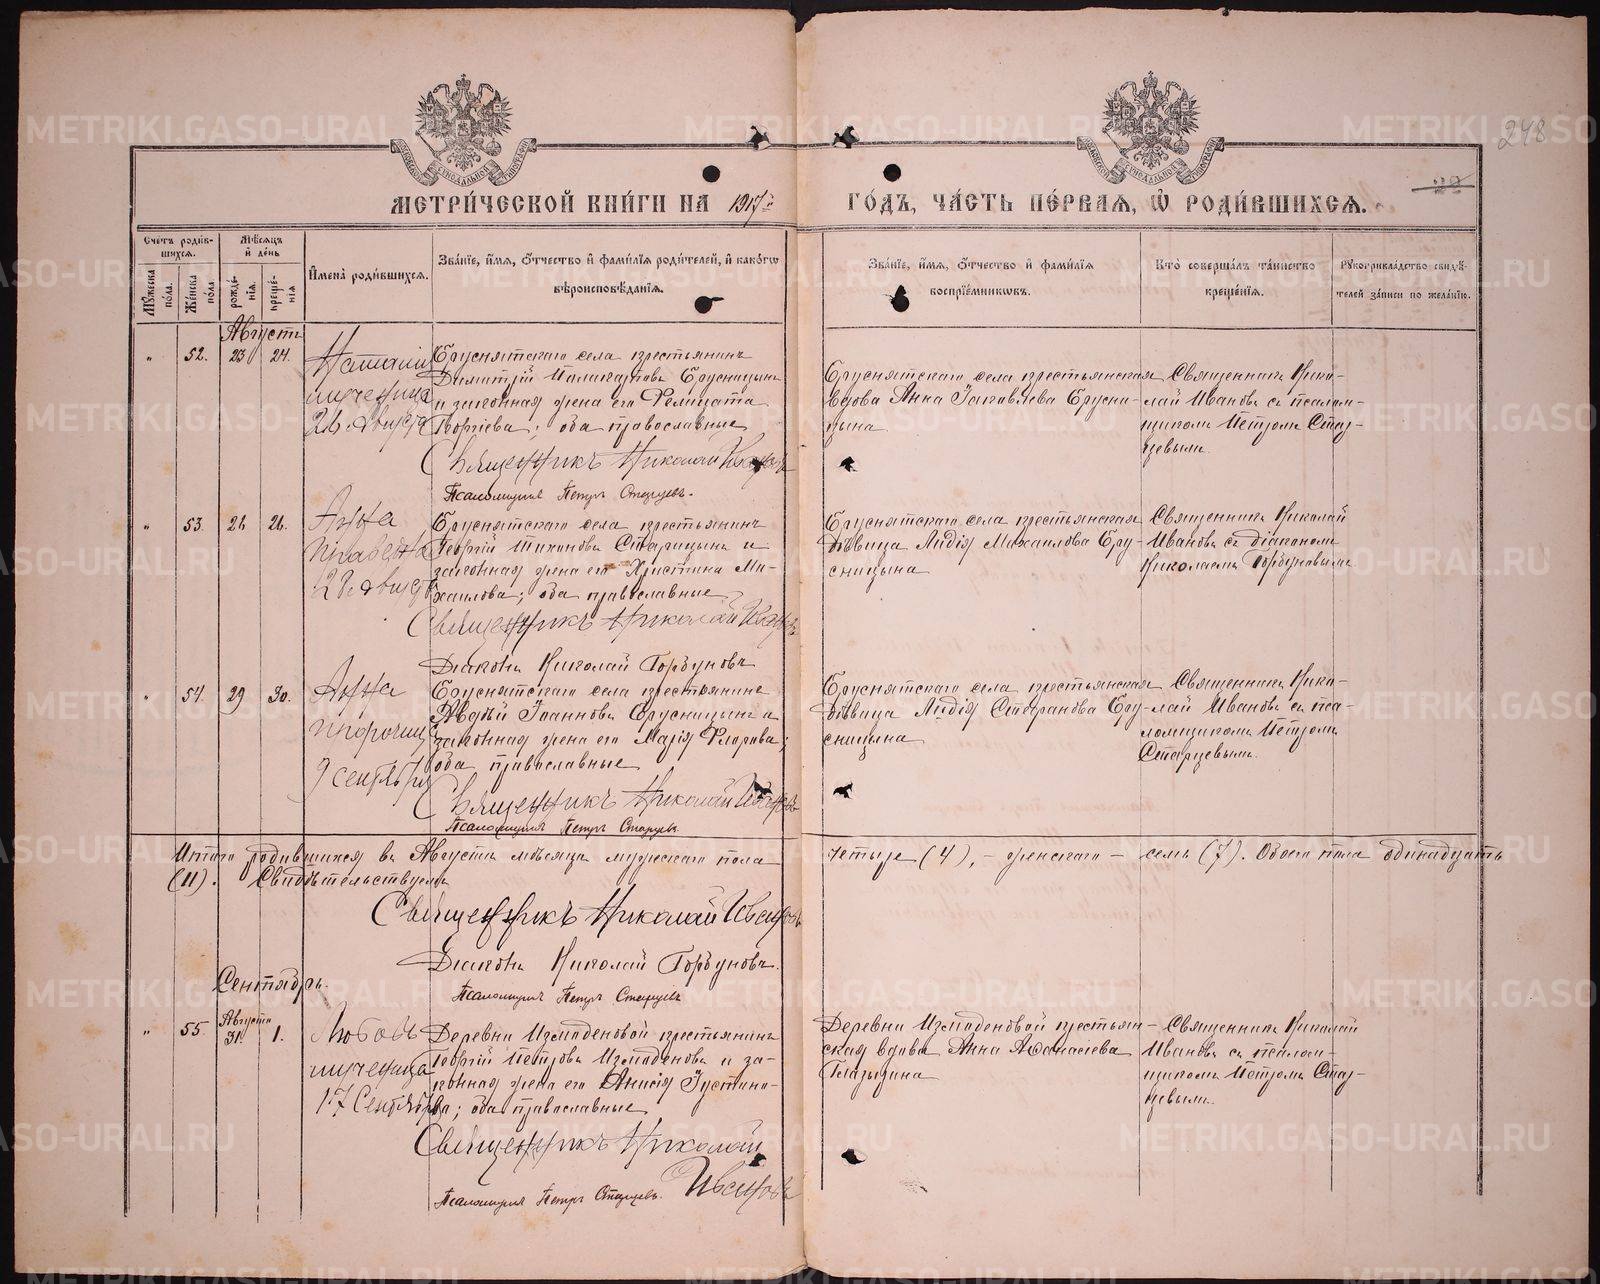 248
МЕТРИ́ЧЕСКОЙ КНИ́ГИ НА 1917й ГО́ДЪ, ЧА́СТЬ ПЕ́РВАЯ, Ѡ РОДИ́ВШИХСЯ.
Сче́тъ роди́вшихся.
Му́жеска по́ла.
Же́нска по́ла.
Мѣ́сяцъ и҆ де́нь
рожде́нїя.
креще́нїя
И҆мена̀ роди́вшихся.
Зва́нїе, и҆́мя, ѻ҆́тчество и҆ фами́лїя роди́телей, и҆ како́гѡ вѣроисповѣ́данїя.
Зва́нїе, и҆́мя, ѻ҆́тчество и҆ фами́лїя воспрїе́мниковъ.
Кто̀ соверша́лъ та́инство креще́нїя.
Рукоприкла́дство свидѣ́телей за́писи по жела́нїю.
Августъ
" 52. 23 24.
Наталія
мученица
26 августа
Бруснятскаго села крестьянинъ
Димитрій Поликарповъ Брусницынъ
и законная жена его Фелицата
Георгіева; оба православные
Священникъ Николай Ивановъ
Псаломщикъ Петръ Старцевъ.
Бруснятскаго села крестьянская
вдова Анна Іаковлева Брусни-
цына
Священникъ Нико-
лай Ивановъ съ псалом-
щикомъ Петромъ Стар-
цевымъ.
" 53. 26 26.
Анна
праведная
28 августа
Бруснятскаго села крестьянинъ
Георгій Тихоновъ Старицынъ и
законная жена его Христина Ми-
хаилова; оба православные
Священникъ Николай Ивановъ
Діаконъ Николай Горбуновъ
Бруснятскаго села крестьянская
дѣвица Лидія Михаилова Бру-
сницына
Священникъ Николай
Ивановъ съ діакономъ
Николаемъ Горбуновымъ
" 54. 29 30.
Анна
пророчица
9 сентября
Бруснятскаго села крестьянинъ
Авдѣй Іоанновъ Брусницынъ и
законная жена его Марія Флорова;
оба православные
Священникъ Николай Ивановъ
Псаломщикъ Петръ Старцевъ
Бруснятскаго села крестьянская
дѣвица Лидія Стефанова Бру-
сницына
Священникъ Нико-
лай Ивановъ съ пса-
ломщикомъ Петромъ
Старцевымъ.
Итого родившихся въ Августѣ мѣсяцѣ мужескаго пола четыре (4), - женскаго - семь (7). Обоего пола одинадцать
(11). Свидѣтельствуемъ
Священникъ Николай Ивановъ
Діаконъ Николай Горбуновъ.
Псаломщикъ Петръ Старцевъ
Сентябрь.
Августа
" 55. 31. 1.
Любовь
мученица
17 Сентября
Деревни Измоденовой крестьянинъ
Георгій Петровъ Измоденовъ и за-
конная жена его Анисія Іустино-
ва; оба православные
Священникъ Николай
Ивановъ
Псаломщикъ Петръ Старцевъ.
Деревни Измоденовой крестьян-
ская вдова Анна Аѳанасіева
Глазырина
Священникъ Николай
Ивановъ съ псалом-
щикомъ Петромъ Стар-
цевымъ.
METRIKI.GASO-URAL.RU